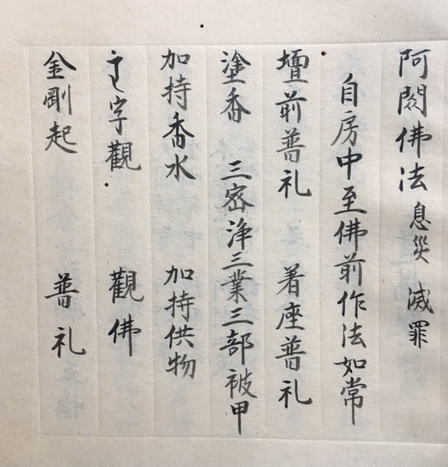 阿閦佛法 息災 滅罪
自房中至佛前作法如常
壇前普礼 着座普礼
塗香 三密淨三業三部被甲
加持香水 加持供物
字觀 觀佛
金剛起 普礼